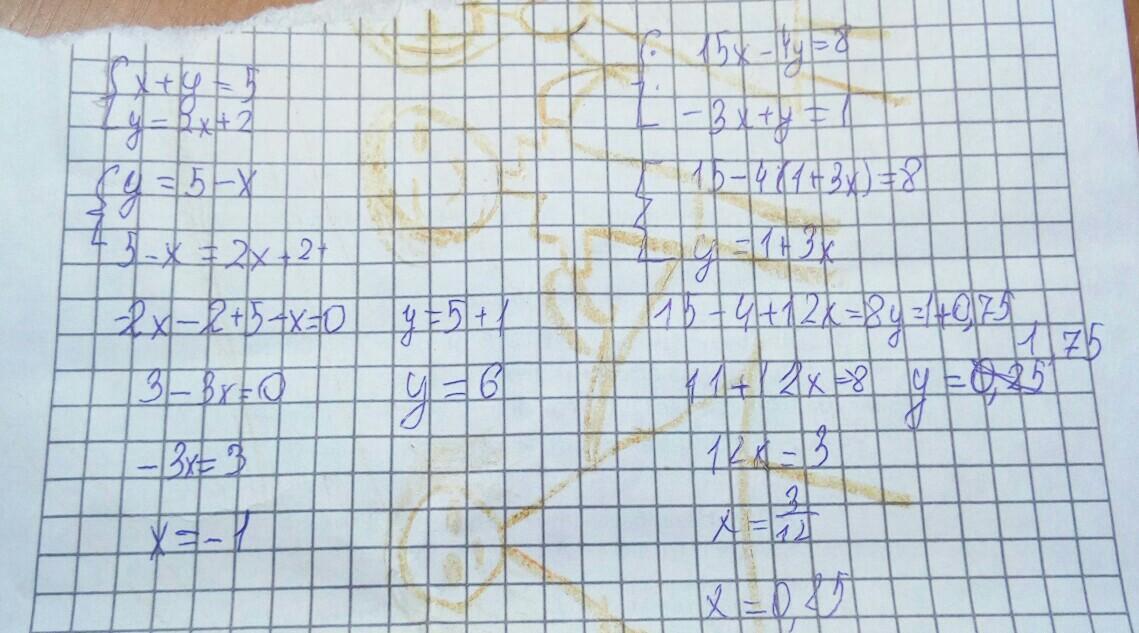 x+y=5
y=2x+2
y=5-x
5-x=2x+2
-2x-2+5-x=0 y=5+1
3-3x=0 y=6
-3x=3
x=-1
15x-4y=8
-3x+y=1
15-4(1+3x)=8
y=1+3x
15-4+12x=8 y=1+0,75
1,75
11+12x=8 y=0,25
12x=3
x=3/12
x=0,25